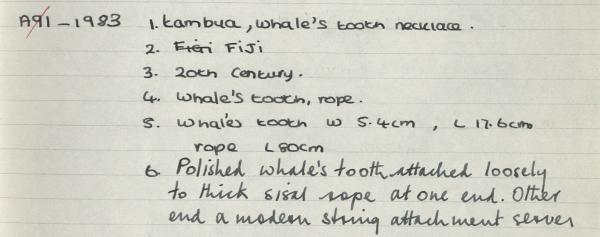 A91-1983 1. tambua, whale's tooth necklace.
2. Fiji
3. 20th Century.
4. Whale's tooth, rope.
5. Whale's tooth W 5.4cm, L 17.6cm
rope L 80cm
6. Polished whale's tooth attached loosely
to thick sisal rope at one end. Other
end a modern string attachment serves